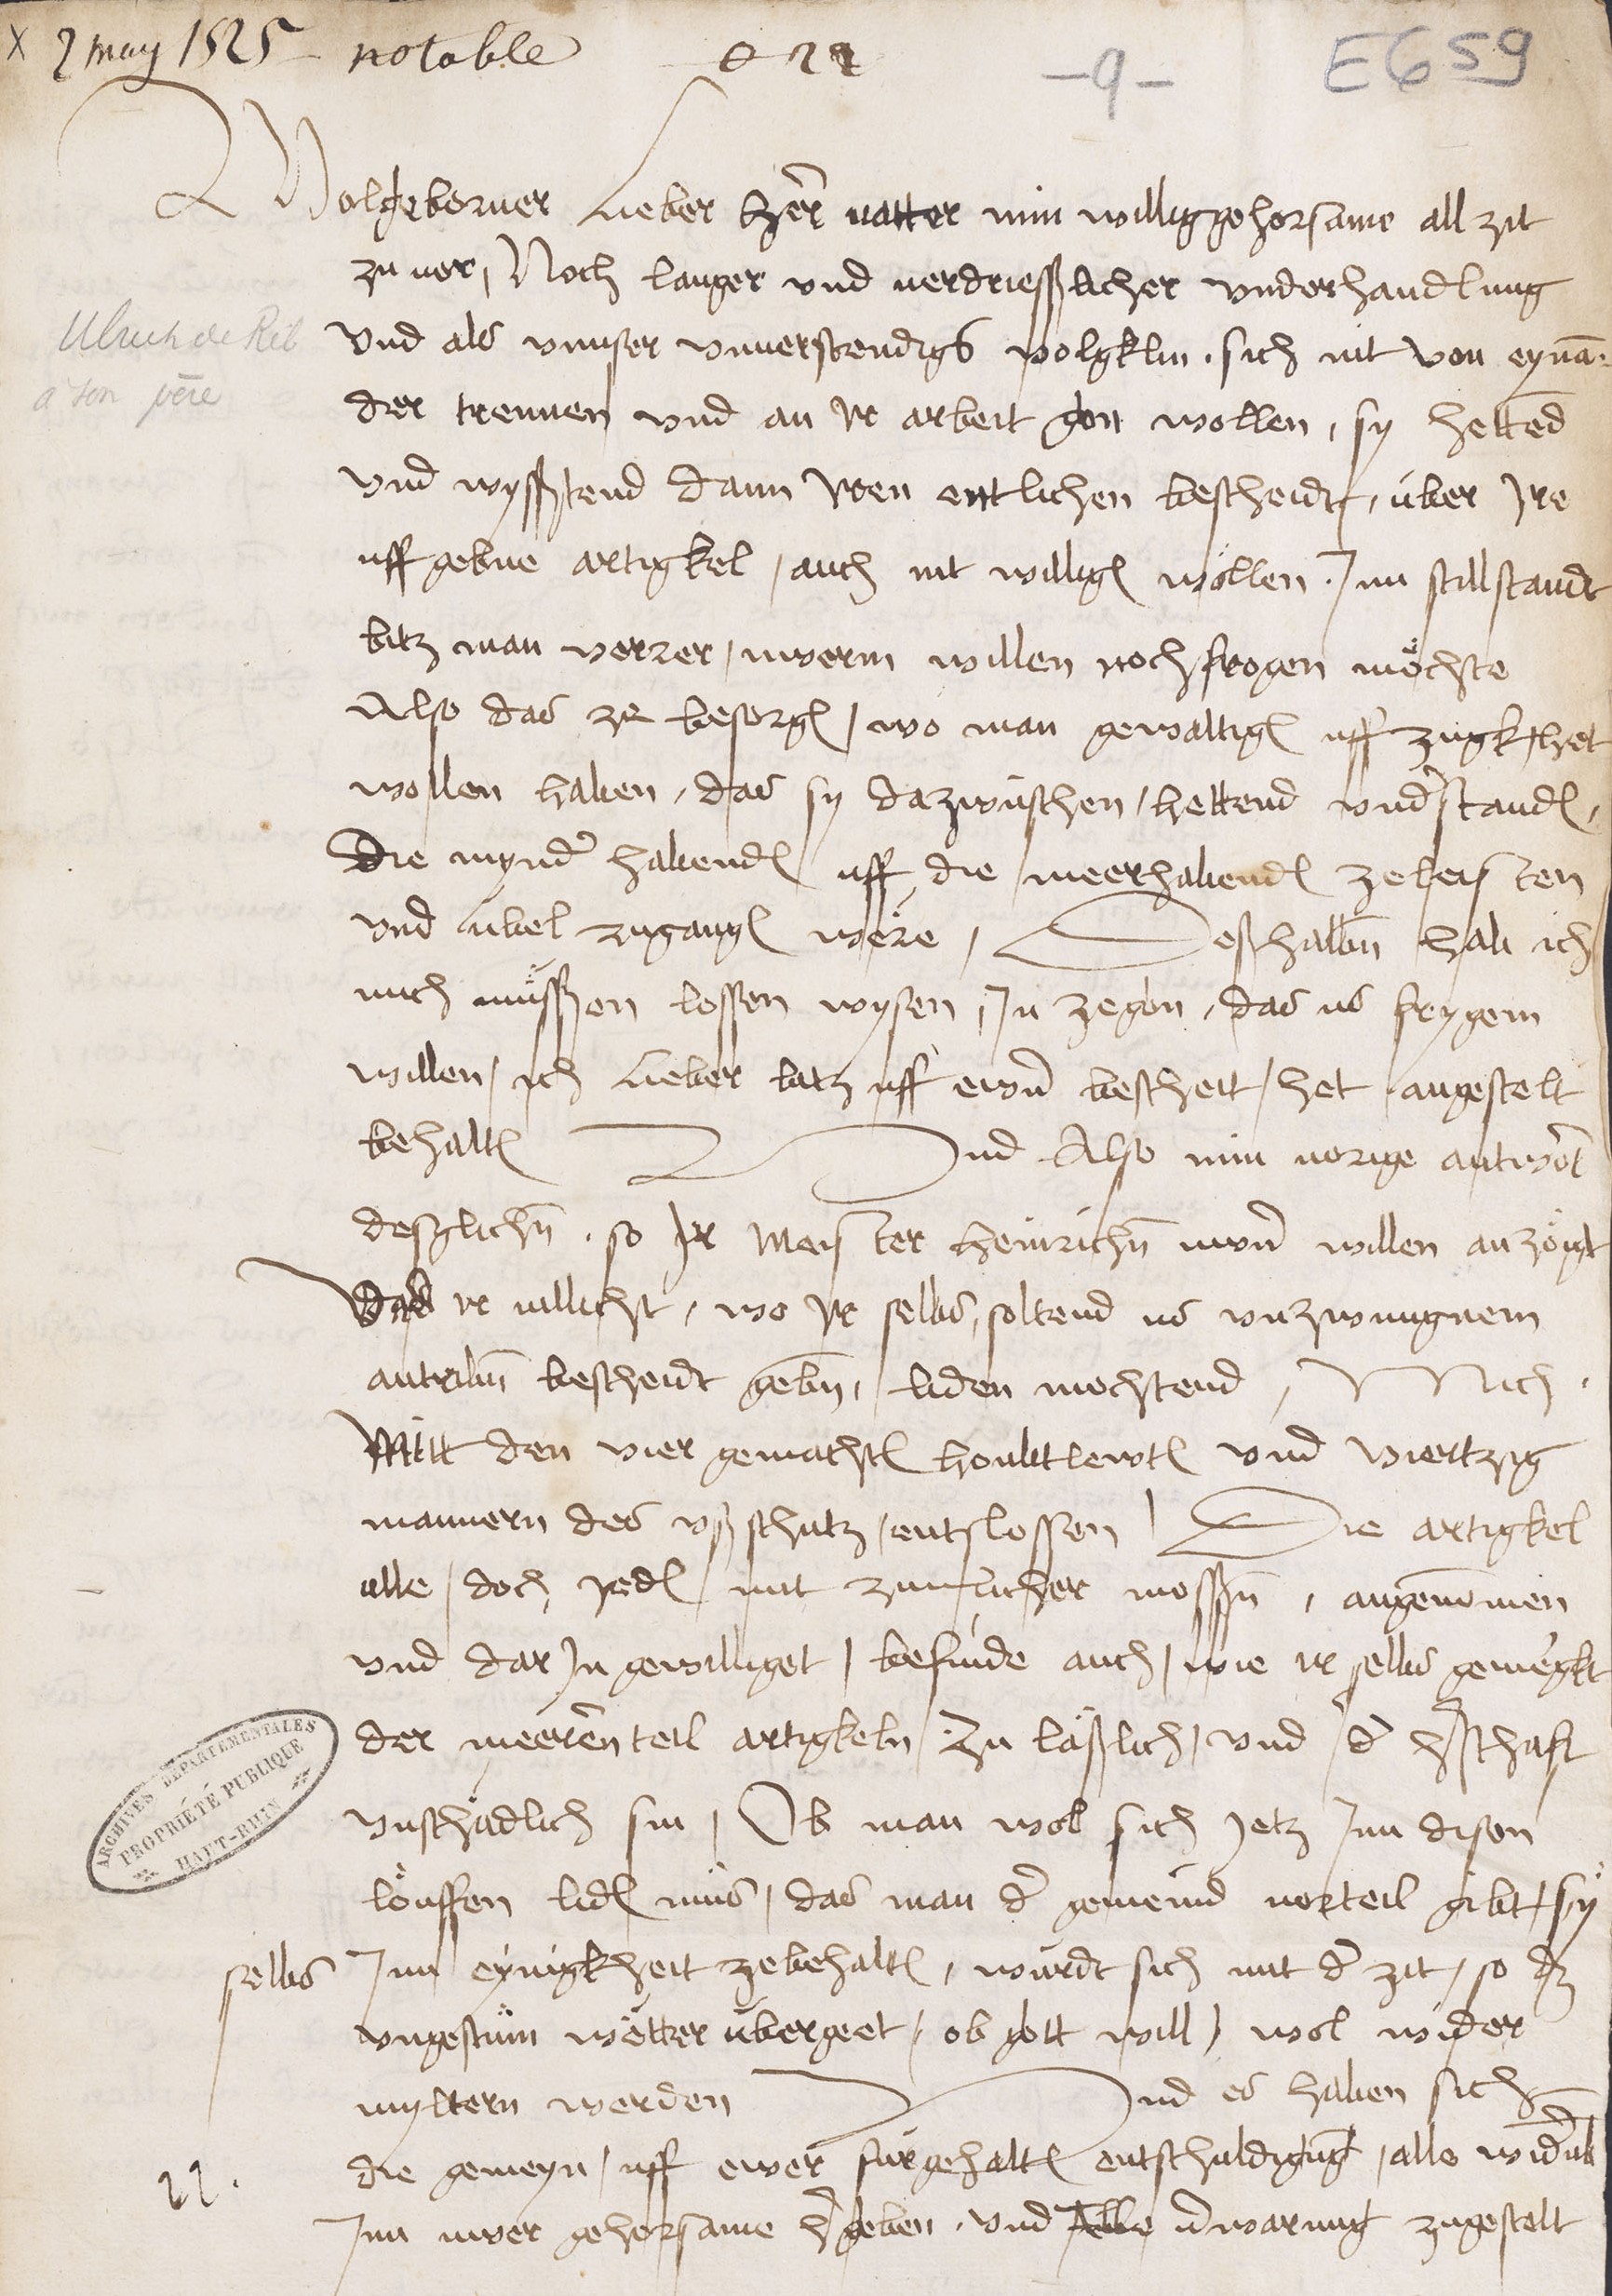 x 2 may 1525 notable
022
-9-
E659
Wolgeborner Lieber her vatter min willig gehorsame all zit
zu vor, Noch langer und verdriesslicher underhandlung
Ulrich de Rib
à son père
Und als unnser unverstendigs volgklin sich nit von eynan
der trennen und an Ir arbeit gon wollen, sy hettend
und wyssztend dann Iren entlichen bescheidt, über Ire
uffgebne artigkel, auch nit willigen wöllen Inn stillstandt
bitz man verrer uwern willen nochfrogen möchte
Also das ze besorgen, wo man gewaltigen uffzugk het
wollen haben, das sy dazwüschen hettend understanden,
Die mynder habenden uff die meerhabenden zeleisten
und übel zugangen were, Deßhalben hab ich
mich müssen lossen wysen, In zegön, das us frygem
willen, ich Lieber bitz uff ewern bescheit, het angestelt
behalten Und Also min vorige antwort
deßglichen so Ir Meister Heinrichen uwern willen anzöigt
Das ir villicht, wo Ir selbs soltend us unzwungnem
bescheidt geben, liden mochtend, Mich
Mitt den vier gemachten houbtlewten und viertzig
mannern des ußschutz, entslossen Die artigkel
alle, doch yeden mit zimlicher mossen, angenommen
und dar In gewilliget, befinde auch, wie ir selbs gemergkt
der meerenteil artigkeln Zu läßlich, und der herschaft
unschädlich sin, Ob man wol sich Jetz Inn disen
löuffen liden mus, das man der gemeind vorteil gibt, sy
selbs Inn eynigkheit zebehalten, würdt sich mit der zit, so dz
ungestüm wetter übergeet, ob gott will, wol wider
myltern werden Und es haben sich
die gemeyn, uff ewer fürgehalten entschuldigung, alle
22.
Inn uwer gehorsame ergeben, und zugestelt
ARCHIVES DÉPARTEMENTALES
PROPRIÉTÉ PUBLIQUE
HAUT-RHIN